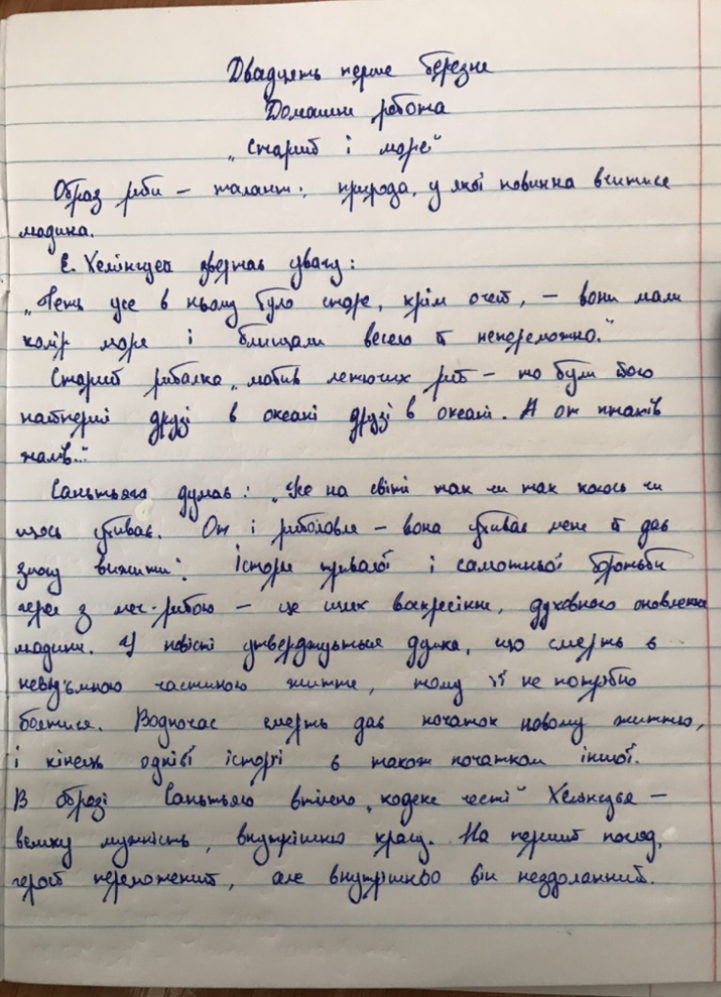 Двадцять перше березня
Домашня робота
„Старий і море"
Образ риби – талант; природа, у якої повинна вчитися
людина.
Е. Хемінгуей звертав увагу:
„Геть усе в ньому було старе, крім очей, – вони мали
колір моря і блищали весело й непереможно."
Старий рибалка „любив летючих риб – то були його
найперші друзі в океані друзі в океані. А от птахів
жалів..."
Сантьяго думав: „Усе на світі так чи так когось чи
щось убиває. От і риболовля – вона убиває мене й дає
змогу вижити". Історія тривалої і самотньої боротьби
героя з меч-рибою – це шлях воскресіння, духовного оновлення
людини. У повісті утверджується думка, що смерть є
невід'ємною частиною життя, тому її не потрібно
боятися. Водночас смерть дає початок новому життю,
і кінець однієї історії є також початком іншої.
В образі Сантьяго втілено „кодекс честі" Хемінгуея –
велику мужність, внутрішню красу. На перший погляд,
герой переможений, але внутрішньо він нездоланний.